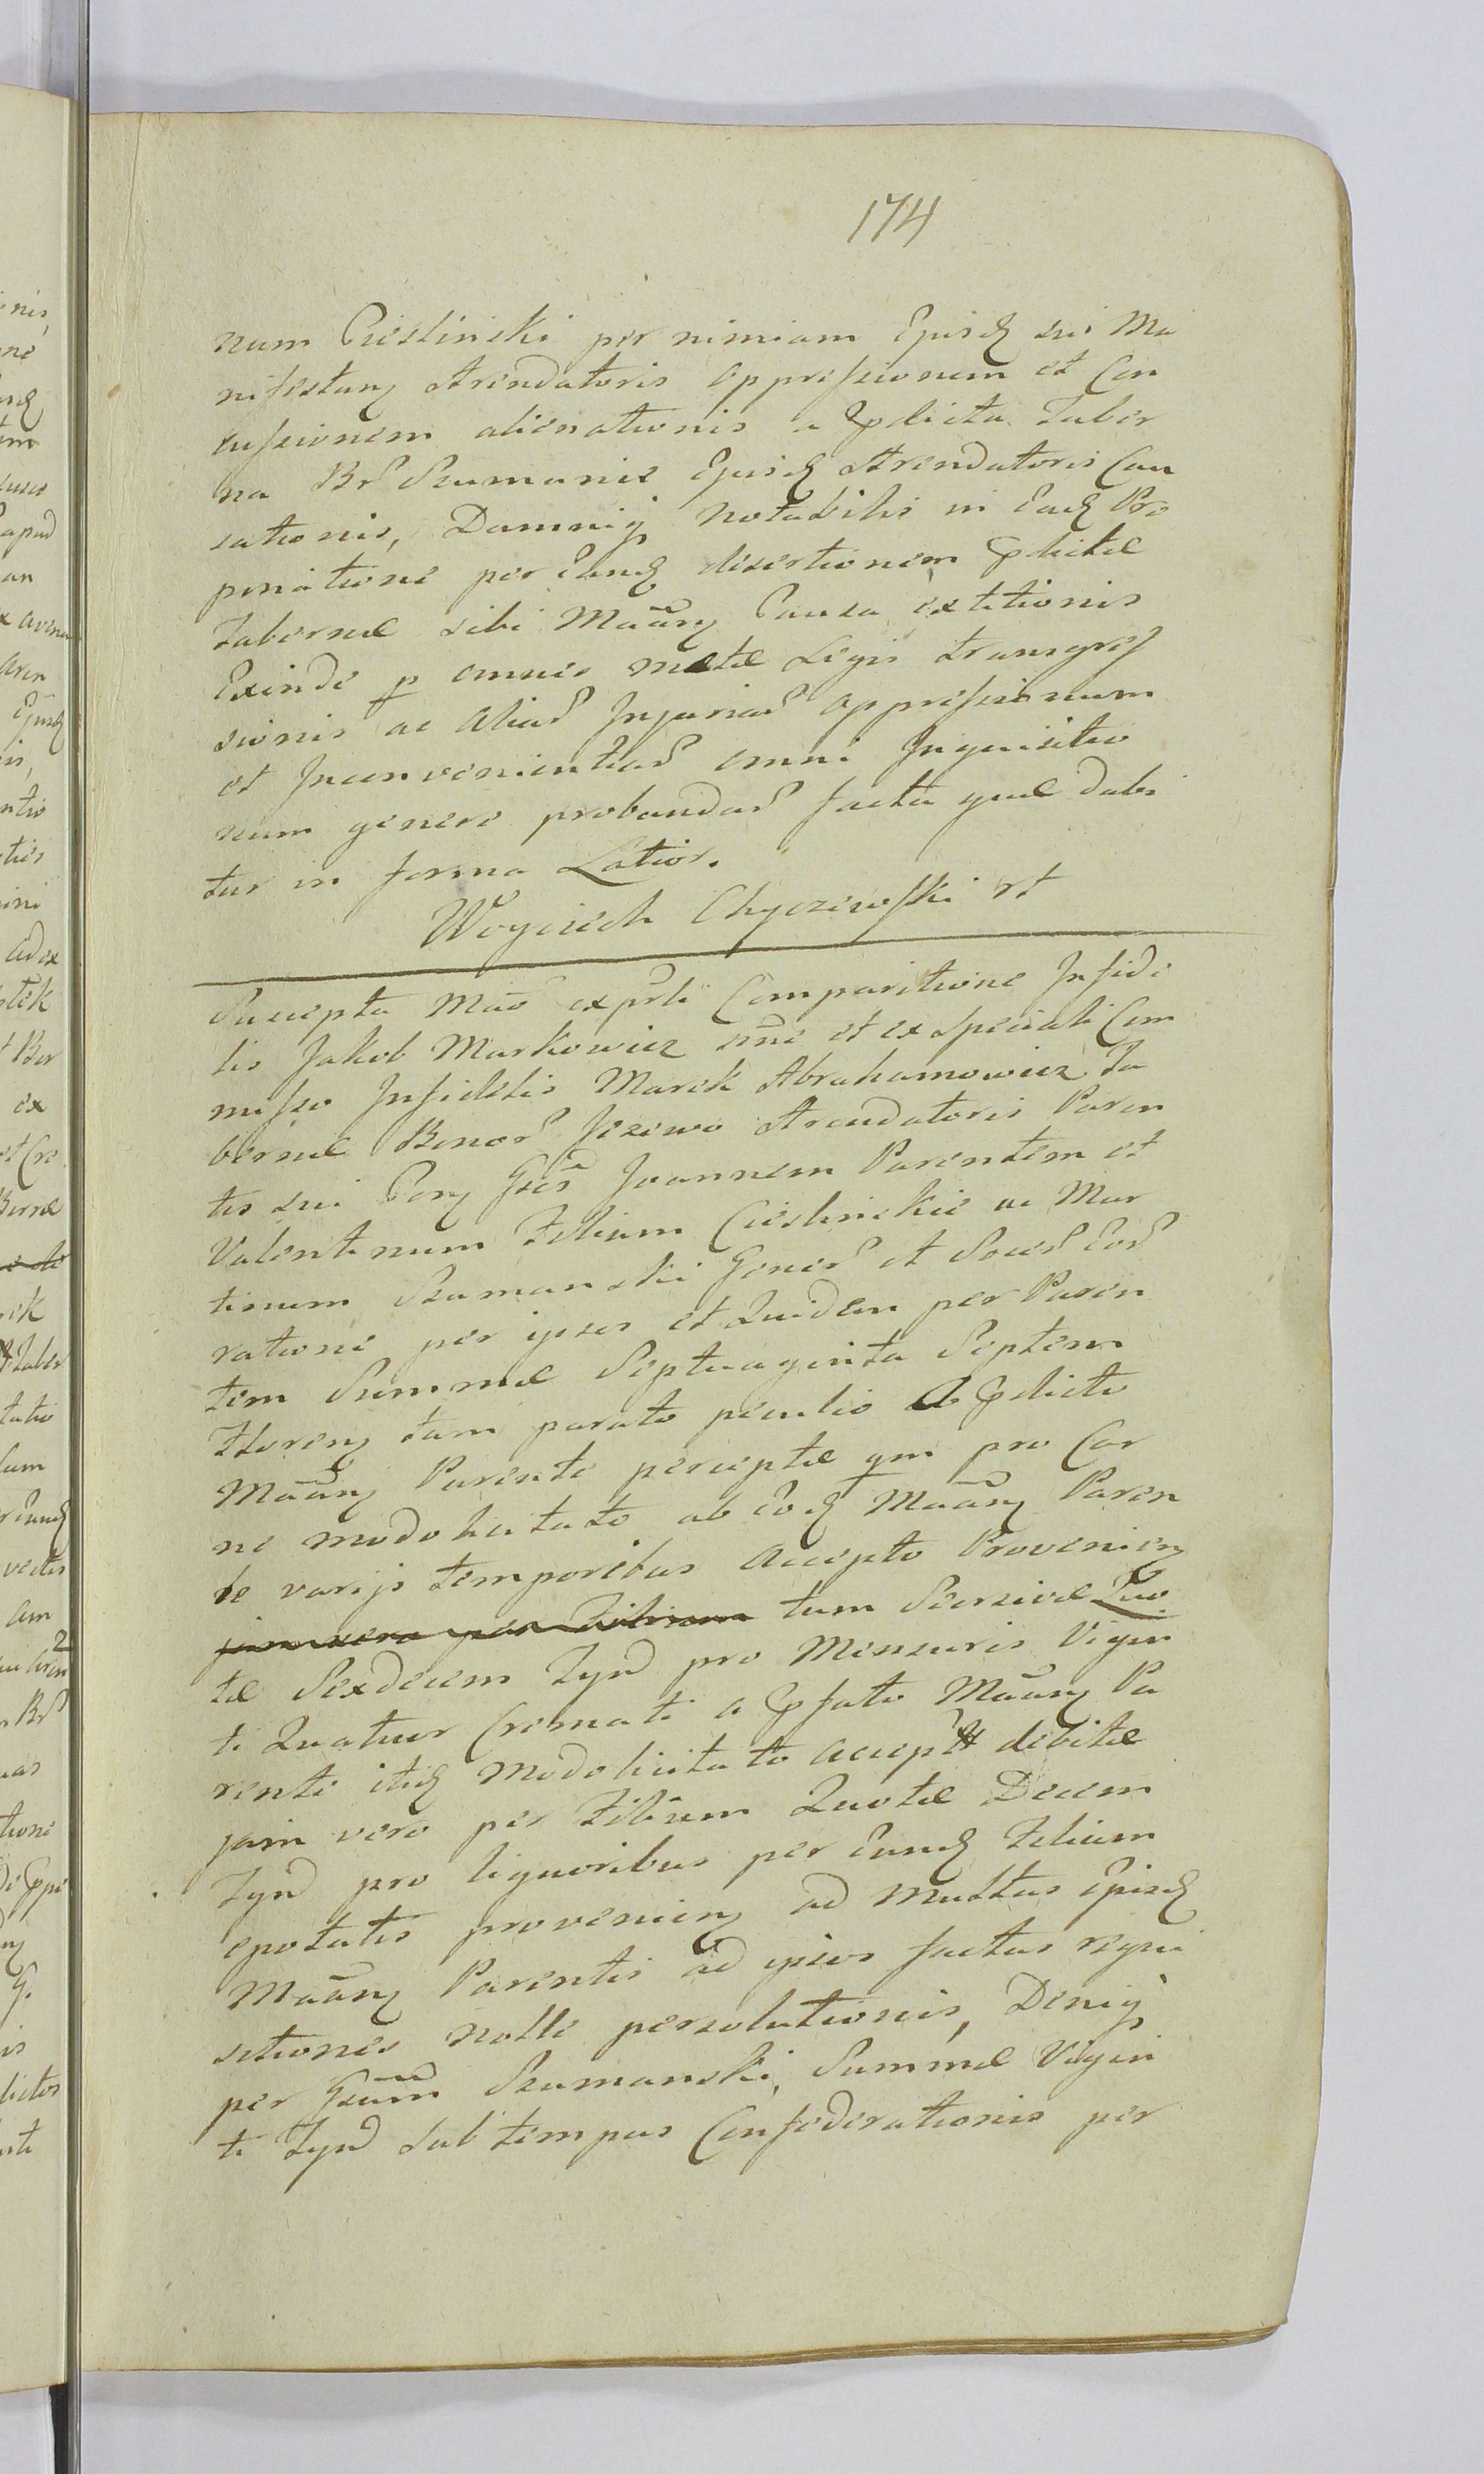 174
num Cieslinski per nimiam Ejusd sui Ma
nifestanq Arendatoris oppressionem et Con
cussionem alienationis a pdicta Taber
na Br Szumanie Ejusd Arendatoris Cau
sationis, Damniq notabilis in Ead Pro
pinatione per Eand desertionem pdictæ
Tabernæ sibi Maanq Causa extitionis
Exinde p omnes metæ Legis transgres
sionis ac alias Injurias oppressionum
et Inconvenientias omni Inquisitio
num genere probandas facta quæ dabi
tur in forma Latior.
Woyciech Chyczewski rt
Suscepta Mão exprli Comparitione Infide
lis Jakob Markowicz nne et ex speciali Com
misso Infidelis Marek Abrahamowicz Ta
bernæ Bonor Jezewo Arendatoris Paren
tis sui Conq Gsos Joannem Parentem et
Valentinum Filium Cieslinskie ac Mar
tinum Szumanski Gener et Socer Eos
ratione per ipsos et Quidem per Paren
tem Summæ Septuaginta Septem
Florenq tam parato peculio a pdicto
Maanq Parente perceptæ qm pro Car
ne modo licitato ab Eod Maanq Paren
te varijs temporibus accepto Provenienq
jam vero per Filium tum Seorsivæ Quo
tæ Sexdecem Tynd pro Mensuris Vigin
ti Quatuor Cremati a pfato Maanq Pa
rente itid modo licitato accept debitæ
jam vero per Filium Quotæ Decem
Tynd pro liquoribus per Eund Filium
epotatis provenienq ad multas Ejusd
Maanq Parentis ad ipsos factas requi
sitiones nolle persolutionis, Deniq
per Gsum Szumanski, Summæ Vigin
ti Tynd sub tempus Confederationis per